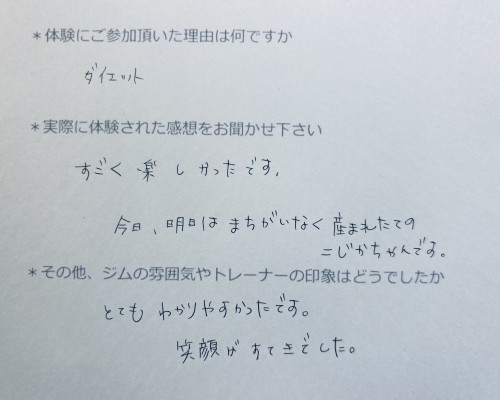 *体験にご参加頂いた理由は何ですか
ダイエット
*実際に体験された感想をお聞かせ下さい
すごく楽しかったです。
今日、明日はまちがいなく産まれたての
こじかちゃんです。
*その他、ジムの雰囲気やトレーナーの印象はどうでしたか
とてもわかりやすかったです。
笑顔がすてきでした。